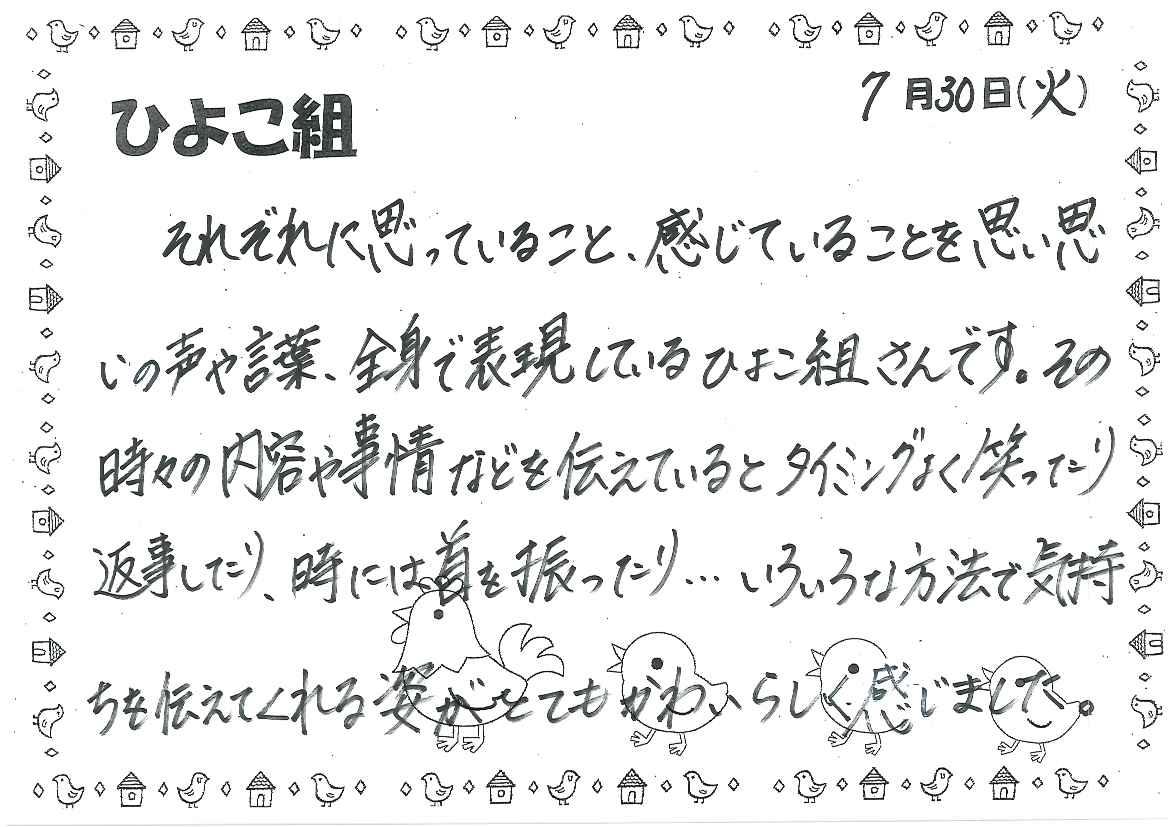 ひよこ組
7月30日(火)
それぞれに思っていること、感じていることを思い思
いの声や言葉、全身で表現しているひよこ組さんです。その
時々の内容や事情などを伝えているとタイミングよく笑ったり
返事したり、時には首を振ったり…いろいろな方法で気持
ちを伝えてくれる姿がとてもかわいらしく感じました。